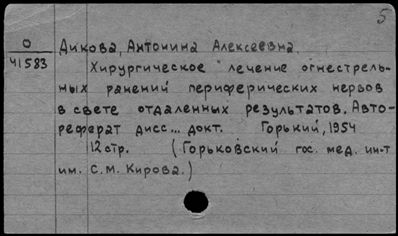 5
О
41583
Дикова, Антонина Алексеевна.
Хирургическое лечение огнестрель-
ных ранений периферических нервов
в свете отдаленных результатов. Авто-
реферат дисс... докт. Горький, 1954
12 стр. (Горьковский гос. мед. ин-т
им. С.М. Кирова.)